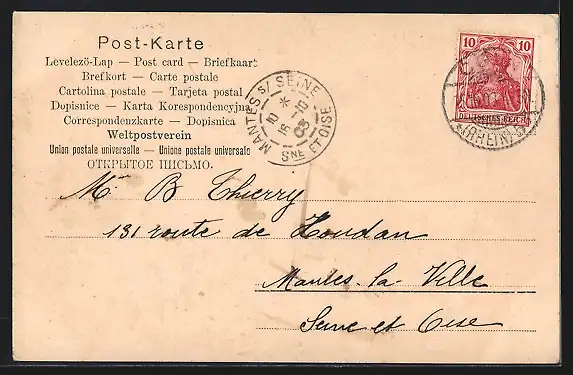 Post-Karte
Levelező-Lap — Post card — Briefkaart
Brefkort — Carte postale
Cartolina postale — Tarjeta postal
Dopisnice — Karta Korespondencyjna
Correspondenzkarte — Dopisnica
Weltpostverein
Union postale universelle — Unione postale universale
ОТКРЫТОЕ ПИСЬМО.
MANTES S/ SEINE
* 
10 10
16
03
SNE ET OISE
10 10
DEUTSCHES REICH
(RHEIN)
Mr B Thierry
131 route de Houdan
Mantes-la-Ville
Seine et Oise